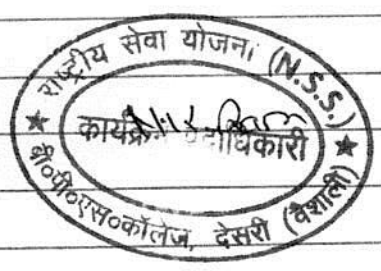 राष्ट्रीय सेवा योजना (N.S.S.)
कार्यक्रम पदाधिकारी
बी०पी०एस०कॉलेज, देसरी (वैशाली)